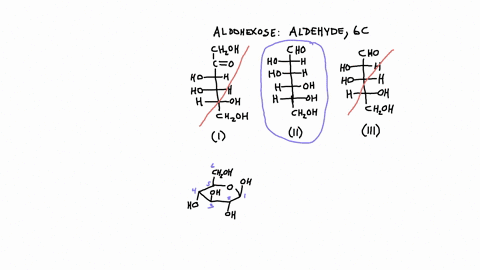 ALDOHEXOSE: ALDEHYDE, 6C
CH2OH
C=O
HO H
HO H
H OH
CH2OH
(I)
CHO
HO H
HO H
H OH
H OH
CH2OH
(II)
CHO
HO H
HO H
H OH
CH2OH
(III)
6
CH2OH
5 O OH
4 OH 1
HO 3 2
OH